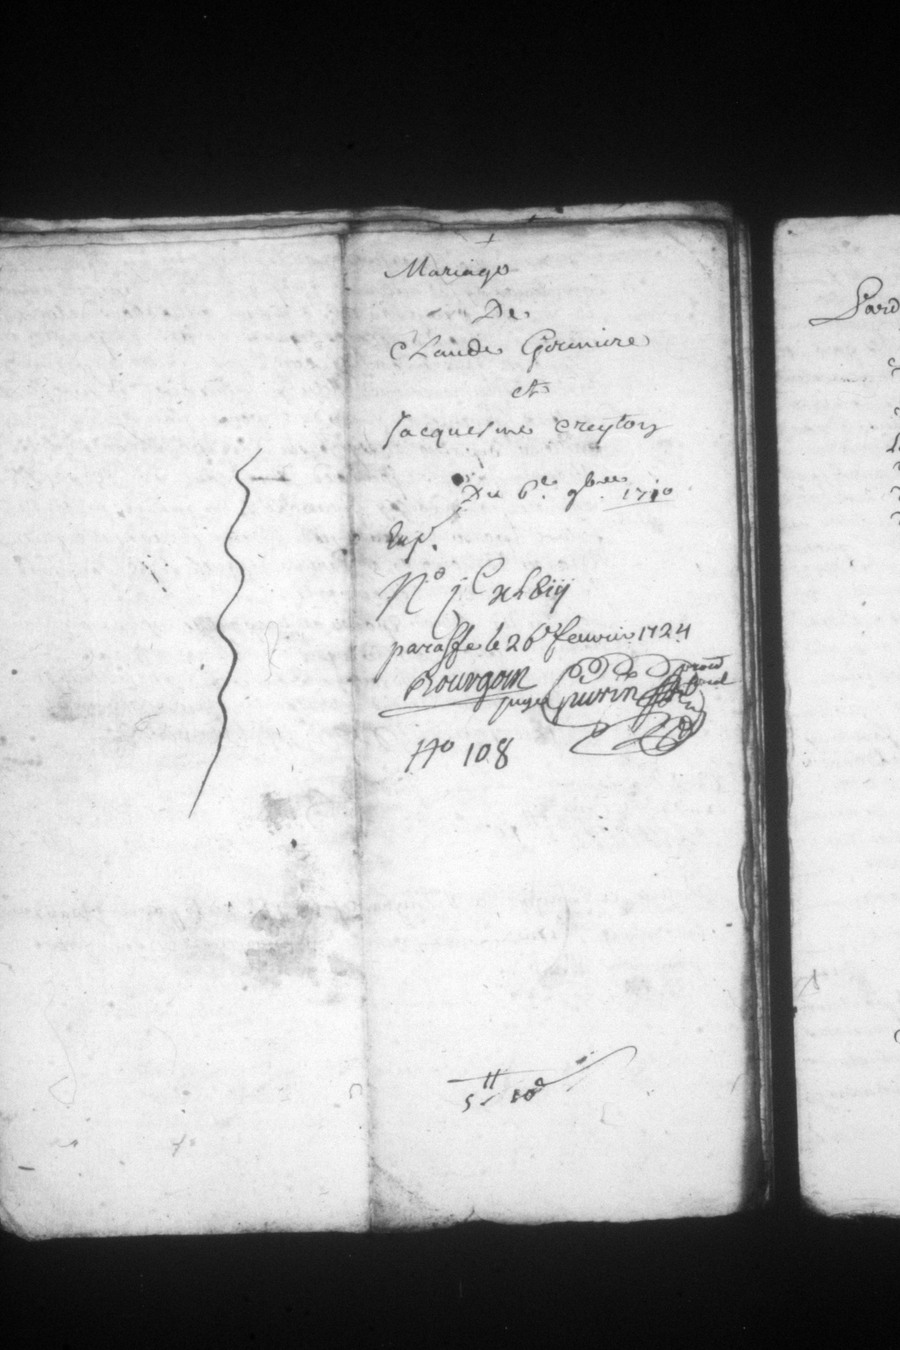 Mariage
De
Claude Gormiere
et
Jacquesme Creyton
Du 6e. 9bre. 1710
Exp.
No j C xLviij
paraffe le 26e fevrier 1724
Rourgoin
juge
No 108
5tt 10d